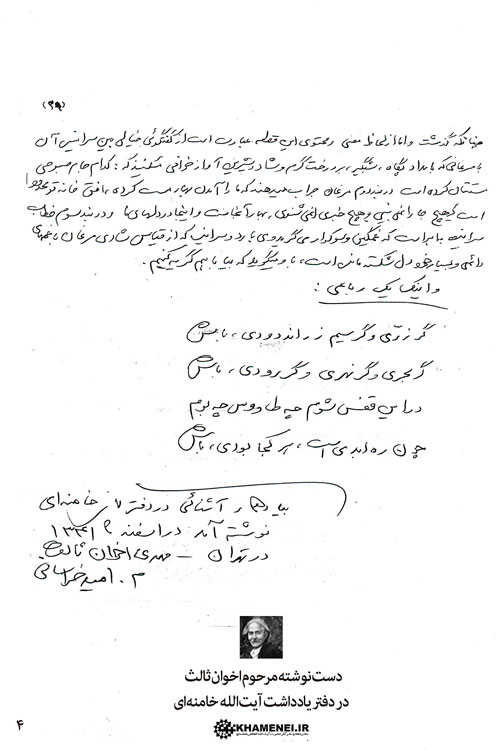 (۲۹)
چنانکه گذشت و اما از لحاظ معنی و محتوی این قطعه عبارت است از گفتگوی خیالی بین سراینده آن
با مرغانی که بامداد پگاه، بر درخت گرم و شادترین آواز خوانی هستند که: کدام جام صبوحی
مستتان کرده است در بند دوم مرغان جواب میدهند که ما را آمدن بهار مست کرده،
است که هیچ جا را نمی بینی و هیچ خبری نمی شنوی، بهار آنجاست و اینجا در دلهای ما و در بند سوم خطاب
سراینده با ابر است که غمگین و سوکوار می گرید و می بارد و سراینده که از قیاس شادی مرغان با غمهای
دائمی و بسیار خود دل شکسته مانده است، با او میگوید که بیا با هم گریه کنیم.
و اینک یک رباعی:
گر زرّی و گر سیم زراندودی، باش
گر بحری و گر نهری و گر رودی، باش
در این قفس شوم چه طاووس چه بوم
چون ره ابدی است، هر کجا بودی، باش
بیادگار آشنائی در دفتر آقای خامنه ای
نوشته آمد در اسفند ۱۳۴۱
در تهران - مهدی اخوان ثالث
م. امید خراسانی
دست‌نوشته مرحوم اخوان ثالث
در دفتر یادداشت آیت‌الله خامنه‌ای
KHAMENEI.IR
۴